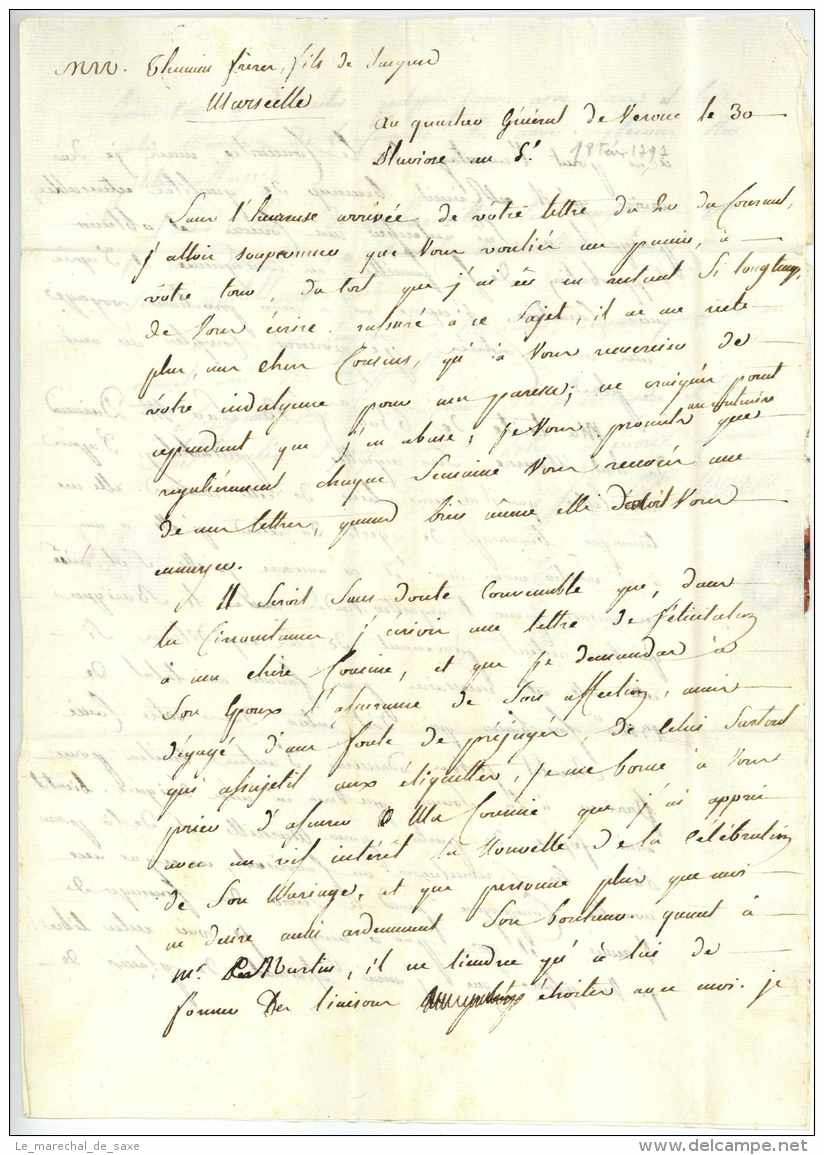 MM. Thumin frères, fils de Jacques
Marseille
au quartier Général de Verone le 30
Pluviose an 5e. 18 Fev 1797
Sans l'heureuse arrivée de vôtre lettre du 20 du Courant,
j'allois soupconner que Vous vouliés me punir, à
vôtre tour, du tort que j'ai eu en restant si longtems
de Vous écrire. rassuré à ce Sujet, il ne me reste
plus, mes chers Cousins, qu'à Vous remercier de
vôtre indulgence pour ma paresse; ne craignés point
cependant que j'en abuse; je Vous promets que
au contraire
regulièrement chaque Semaine Vous recevrés une
de mes lettres, quand bien même elle devroit Vous
ennuyer.
Il Seroit Sans doute Convenable que, dans
la Circonstance, j'écrivis une lettre de félicitation
à ma chère Cousine, et que je demandas à
Son Epoux l'assurance de Son affection; mais
dégagé d'une foule de préjugés, de celui Surtout
qui assujetit aux étiquettes, je me borne à Vous
prier d'assurer Ma Cousine que j'ai appris
avec un vif intérêt la Nouvelle de la Célébration
de Son Mariage, et que personne plus que moi
ne desire aussi ardemment Son bonheur. quant à
Mr. Martin, il ne tiendra qu'à lui de
former Des liaisons étroites avec moi. je
Le_marechal_de_saxe
www.delcampe.net